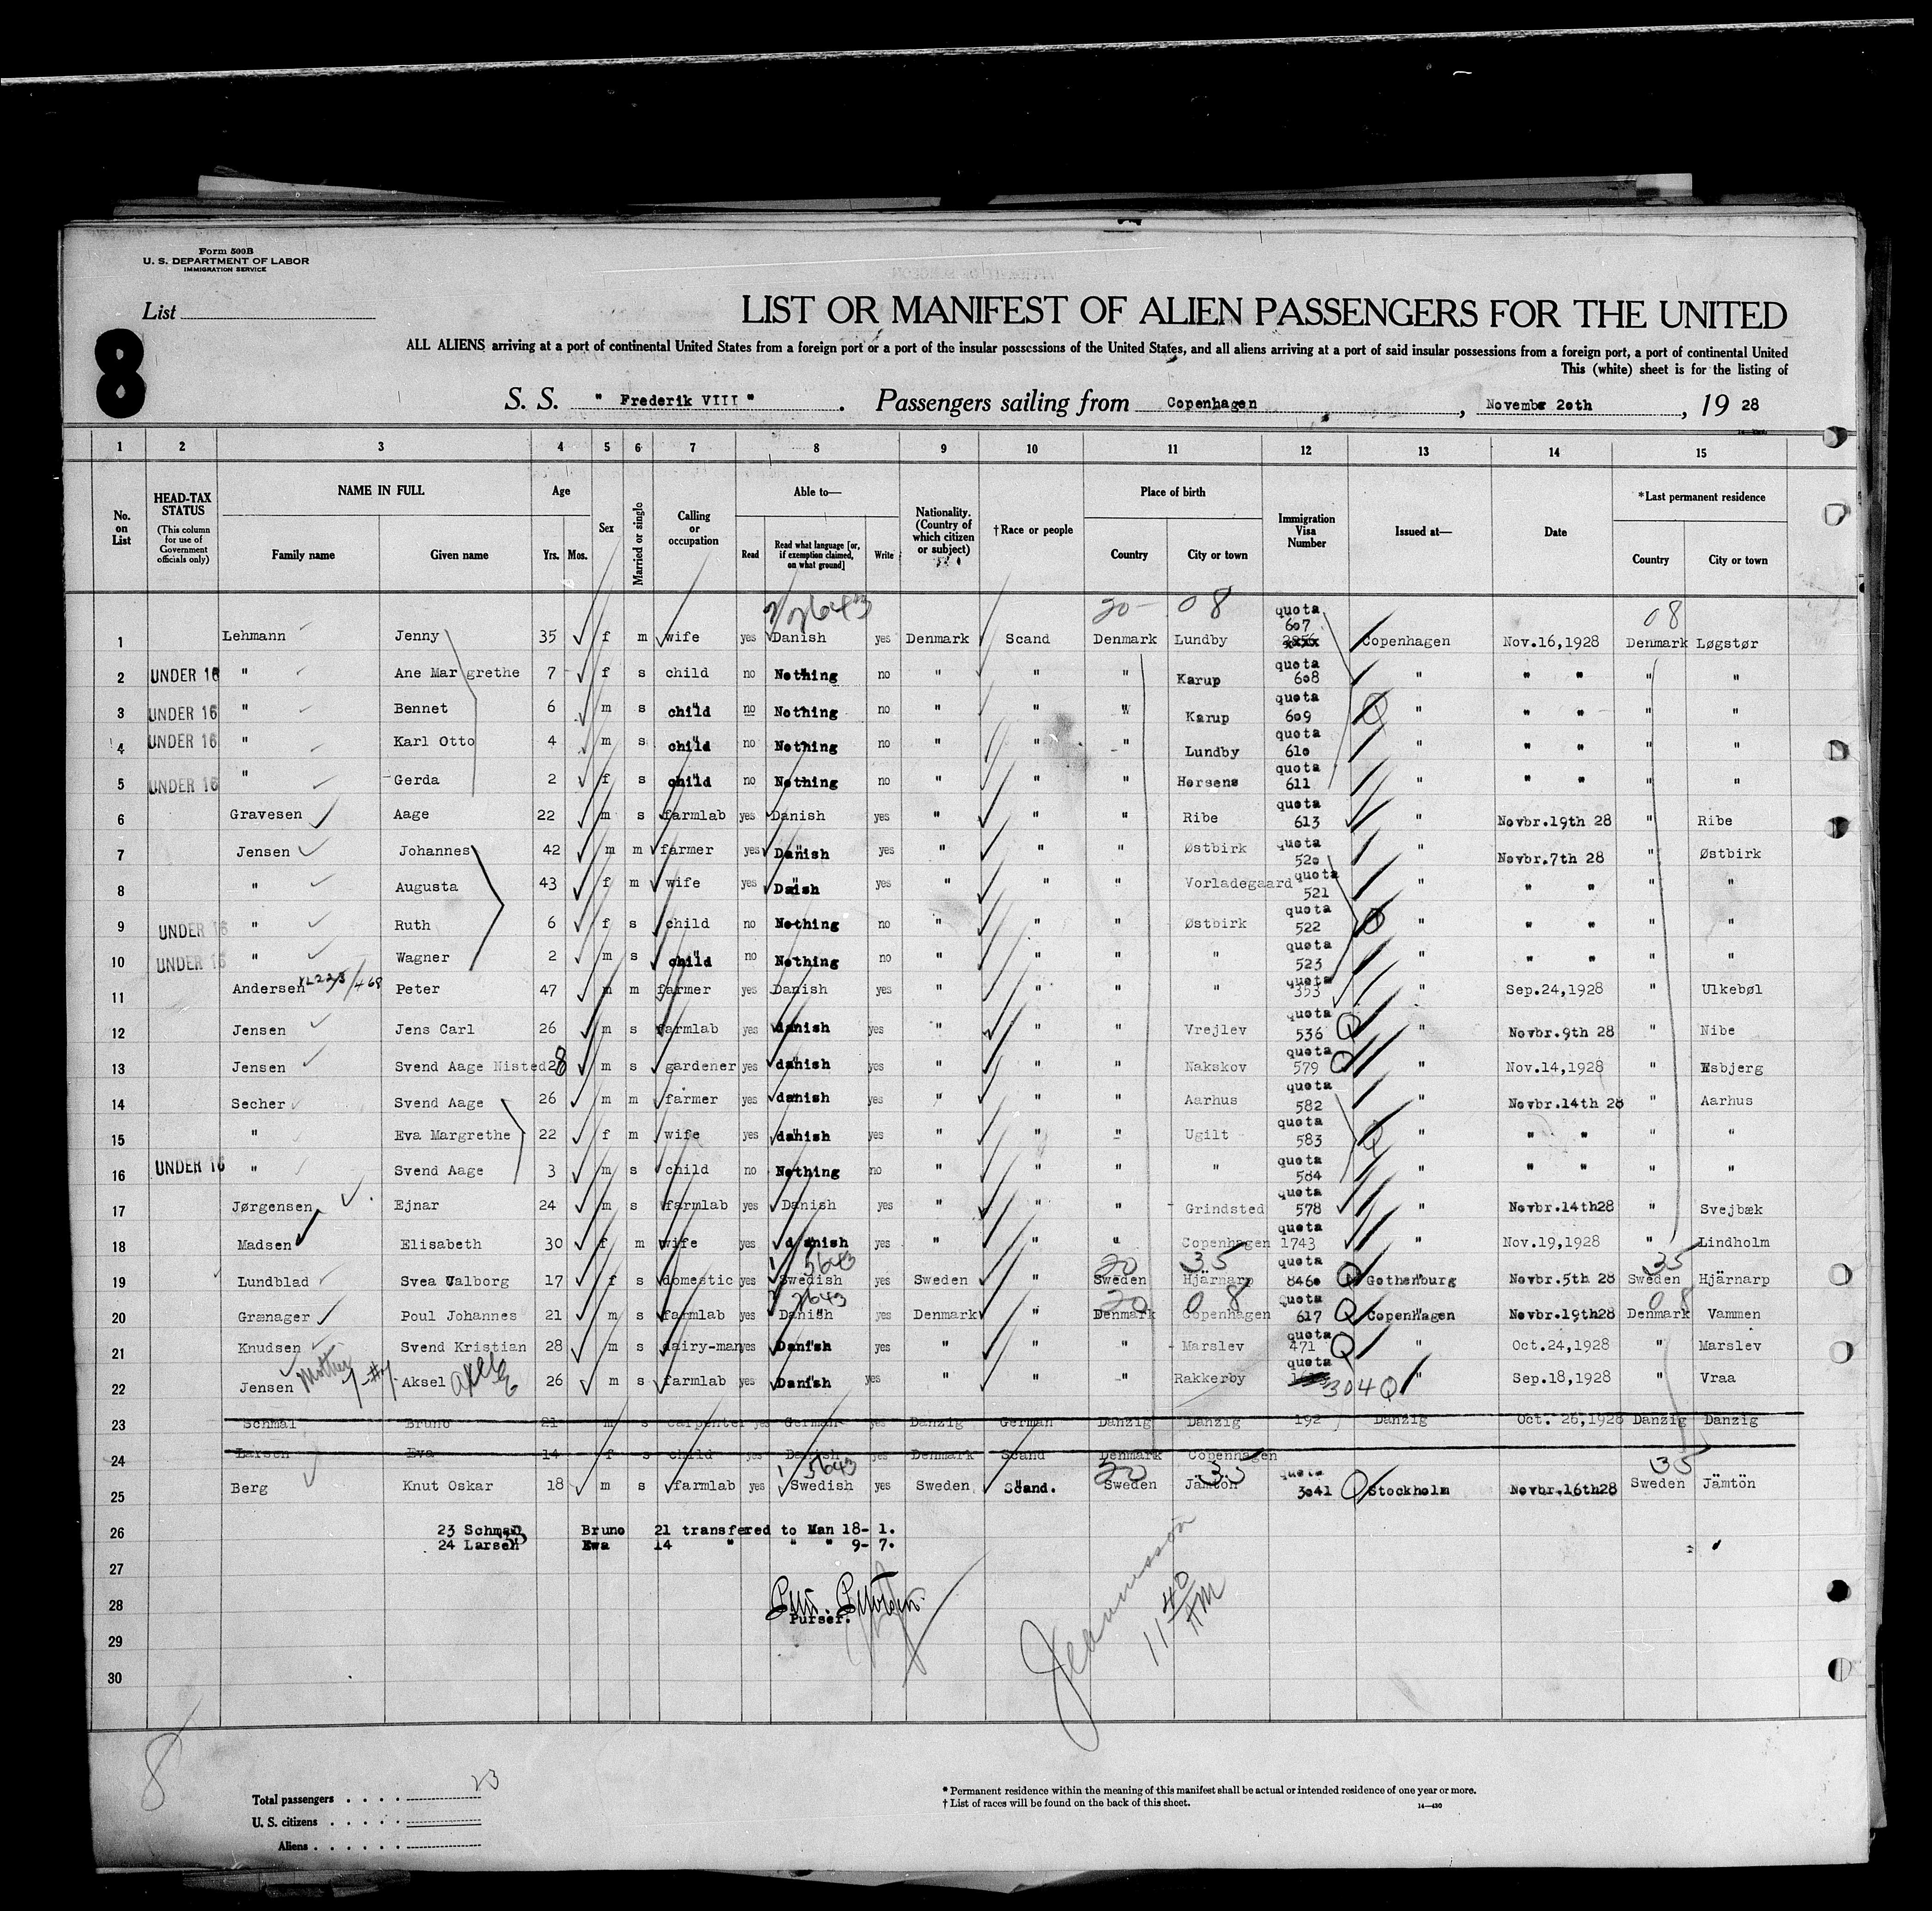 Form 500B
U. S. DEPARTMENT OF LABOR
IMMIGRATION SERVICE
List
8
LIST OR MANIFEST OF ALIEN PASSENGERS FOR THE UNITED
ALL ALIENS arriving at a port of continental United States from a foreign port or a port of the insular possessions of the United States, and all aliens arriving at a port of said insular possessions from a foreign port, a port of continental United
This (white) sheet is for the listing of
S. S. " Frederik VIII " . Passengers sailing from Copenhagen , Novembr 20th , 19 28
1 2 3 4 5 6 7 8 9 10 11 12 13 14 15
No. on List HEAD-TAX STATUS (This column for use of Government officials only) NAME IN FULL Family name Given name Age Yrs. Mos. Sex Married or single Calling or occupation Able to— Read Read what language [or, if exemption claimed, on what ground] Write Nationality. (Country of which citizen or subject) †Race or people Place of birth Country City or town Immigration Visa Number Issued at— Date *Last permanent residence Country City or town
20 - 08 08
1 Lehmann Jenny 35 f m wife yes Danish yes Denmark Scand Denmark Lundby quota 607 Copenhagen Nov.16,1928 Denmark Løgstør
2 UNDER 16 " Ane Margrethe 7 f s child no Nothing no " " " Karup quota 608 " " " " "
3 UNDER 16 " Bennet 6 m s child no Nothing no " " " Karup quota 609 " " " " "
4 UNDER 16 " Karl Otto 4 m s child no Nothing no " " " Lundby quota 610 " " " " "
5 UNDER 16 " Gerda 2 f s child no Nothing no " " " Horsens quota 611 " " " " "
6 Gravesen Aage 22 m s farmlab yes Danish yes " " " Ribe quota 613 " Novbr.19th 28 " Ribe
7 Jensen Johannes 42 m m farmer yes Danish yes " " " Østbirk quota 520 " Novbr.7th 28 " Østbirk
8 " Augusta 43 f m wife yes Daish yes " " " Vorladegaard quota 521 " " " " "
9 UNDER 16 " Ruth 6 f s child no Nothing no " " " Østbirk quota 522 " " " " "
10 UNDER 16 " Wagner 2 m s child no Nothing no " " " " quota 523 " " " " "
11 Andersen Peter 47 m m farmer yes Danish yes " " " " quota 353 " Sep.24,1928 " Ulkebøl
12 Jensen Jens Carl 26 m s farmlab yes danish yes " " " Vrejlev quota 536 Q " Novbr.9th 28 " Nibe
13 Jensen Svend Aage Nisted 28 m s gardener yes danish yes " " " Nakskov quota 579 Q " Nov.14,1928 " Esbjerg
14 Secher Svend Aage 26 m m farmer yes danish yes " " " Aarhus quota 582 " Novbr.14th 28 " Aarhus
15 " Eva Margrethe 22 f m wife yes danish yes " " " Ugilt quota 583 " " " " "
16 UNDER 16 " Svend Aage 3 m s child no Nothing no " " " " quota 584 " " " " "
17 Jørgensen Ejnar 24 m s farmlab yes Danish yes " " " Grindsted quota 578 " Novbr.14th28 " Svejbæk
18 Madsen Elisabeth 30 f m wife yes danish yes " " " Copenhagen quota 1743 " Nov.19,1928 " Lindholm
1 5643 20 35 35
19 Lundblad Svea Valborg 17 f s domestic yes Swedish yes Sweden " Sweden Hjärnarp quota 8460 Gothenburg Novbr.5th 28 Sweden Hjärnarp
2 2643 20 08 08
20 Grænager Poul Johannes 21 m s farmlab yes Danish yes Denmark " Denmark Copenhagen quota 617 Q Copenhagen Novbr.19th28 Denmark Vammen
21 Knudsen Svend Kristian 28 m s dairy-man yes Danish yes " " " Marslev quota 471 Q " Oct.24,1928 " Marslev
22 Jensen Aksel Axel 26 m s farmlab yes Danish yes " " " Rakkerby quota 304 Q " Sep.18,1928 " Vraa
23 Schmal Bruno 21 m s carpenter yes German yes Danzig German Danzig Danzig 192 Danzig Oct. 26,1928 Danzig Danzig
24 Larsen Eva 14 f s child yes Danish yes Denmark Scand Denmark Copenhagen
1 5643 20 35 35
25 Berg Knut Oskar 18 m s farmlab yes Swedish yes Sweden Scand. Sweden Jämtön quota 3041 Q Stockholm Novbr.16th28 Sweden Jämtön
26 23 Schman Bruno 21 transfered to Man 18- 1.
24 Larsen Ewa 14 " " " 9- 7.
27
28 Purser.
29
30
11 40 AM
8
Total passengers . . . . 23
U. S. citizens . . . . .
Aliens . . . . . .
* Permanent residence within the meaning of this manifest shall be actual or intended residence of one year or more.
† List of races will be found on the back of this sheet.
14—430